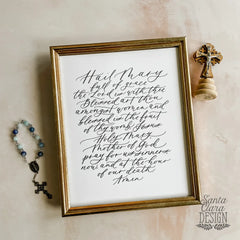 Hail Mary
full of grace
the Lord is with thee
Blessed art thou
amongst women and
blessed is the fruit
of thy womb Jesus
Holy Mary
Mother of God
pray for us sinners
now and at the hour
of our death
Amen
Santa
Clara
DESIGN